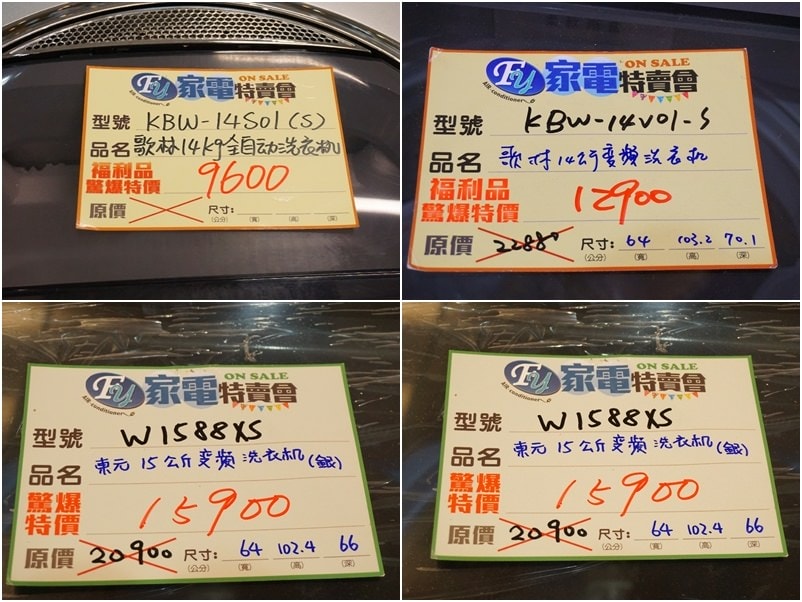 FY 家電特賣會 ON SALE
AIR conditioner
型號 KBW-14S01(S)
品名 歌林14kg全自动洗衣机
福利品
驚爆特價 9600
原價 尺寸:
(公分) (寬) (高) (深)
FY 家電特賣會 ON SALE
AIR conditioner
型號 KBW-14V01-S
品名 歌林14公斤变頻洗衣机
福利品
驚爆特價 12900
原價 22880 尺寸: 64 103.2 70.1
(公分) (寬) (高) (深)
FY 家電特賣會 ON SALE
AIR conditioner
型號 W1588XS
品名 東元15公斤变頻洗衣机(銀)
驚爆
特價 15900
原價 20900 尺寸: 64 102.4 66
(公分) (寬) (高) (深)
FY 家電特賣會 ON SALE
AIR conditioner
型號 W1588XS
品名 東元15公斤变頻洗衣机(銀)
驚爆
特價 15900
原價 20900 尺寸: 64 102.4 66
(公分) (寬) (高) (深)